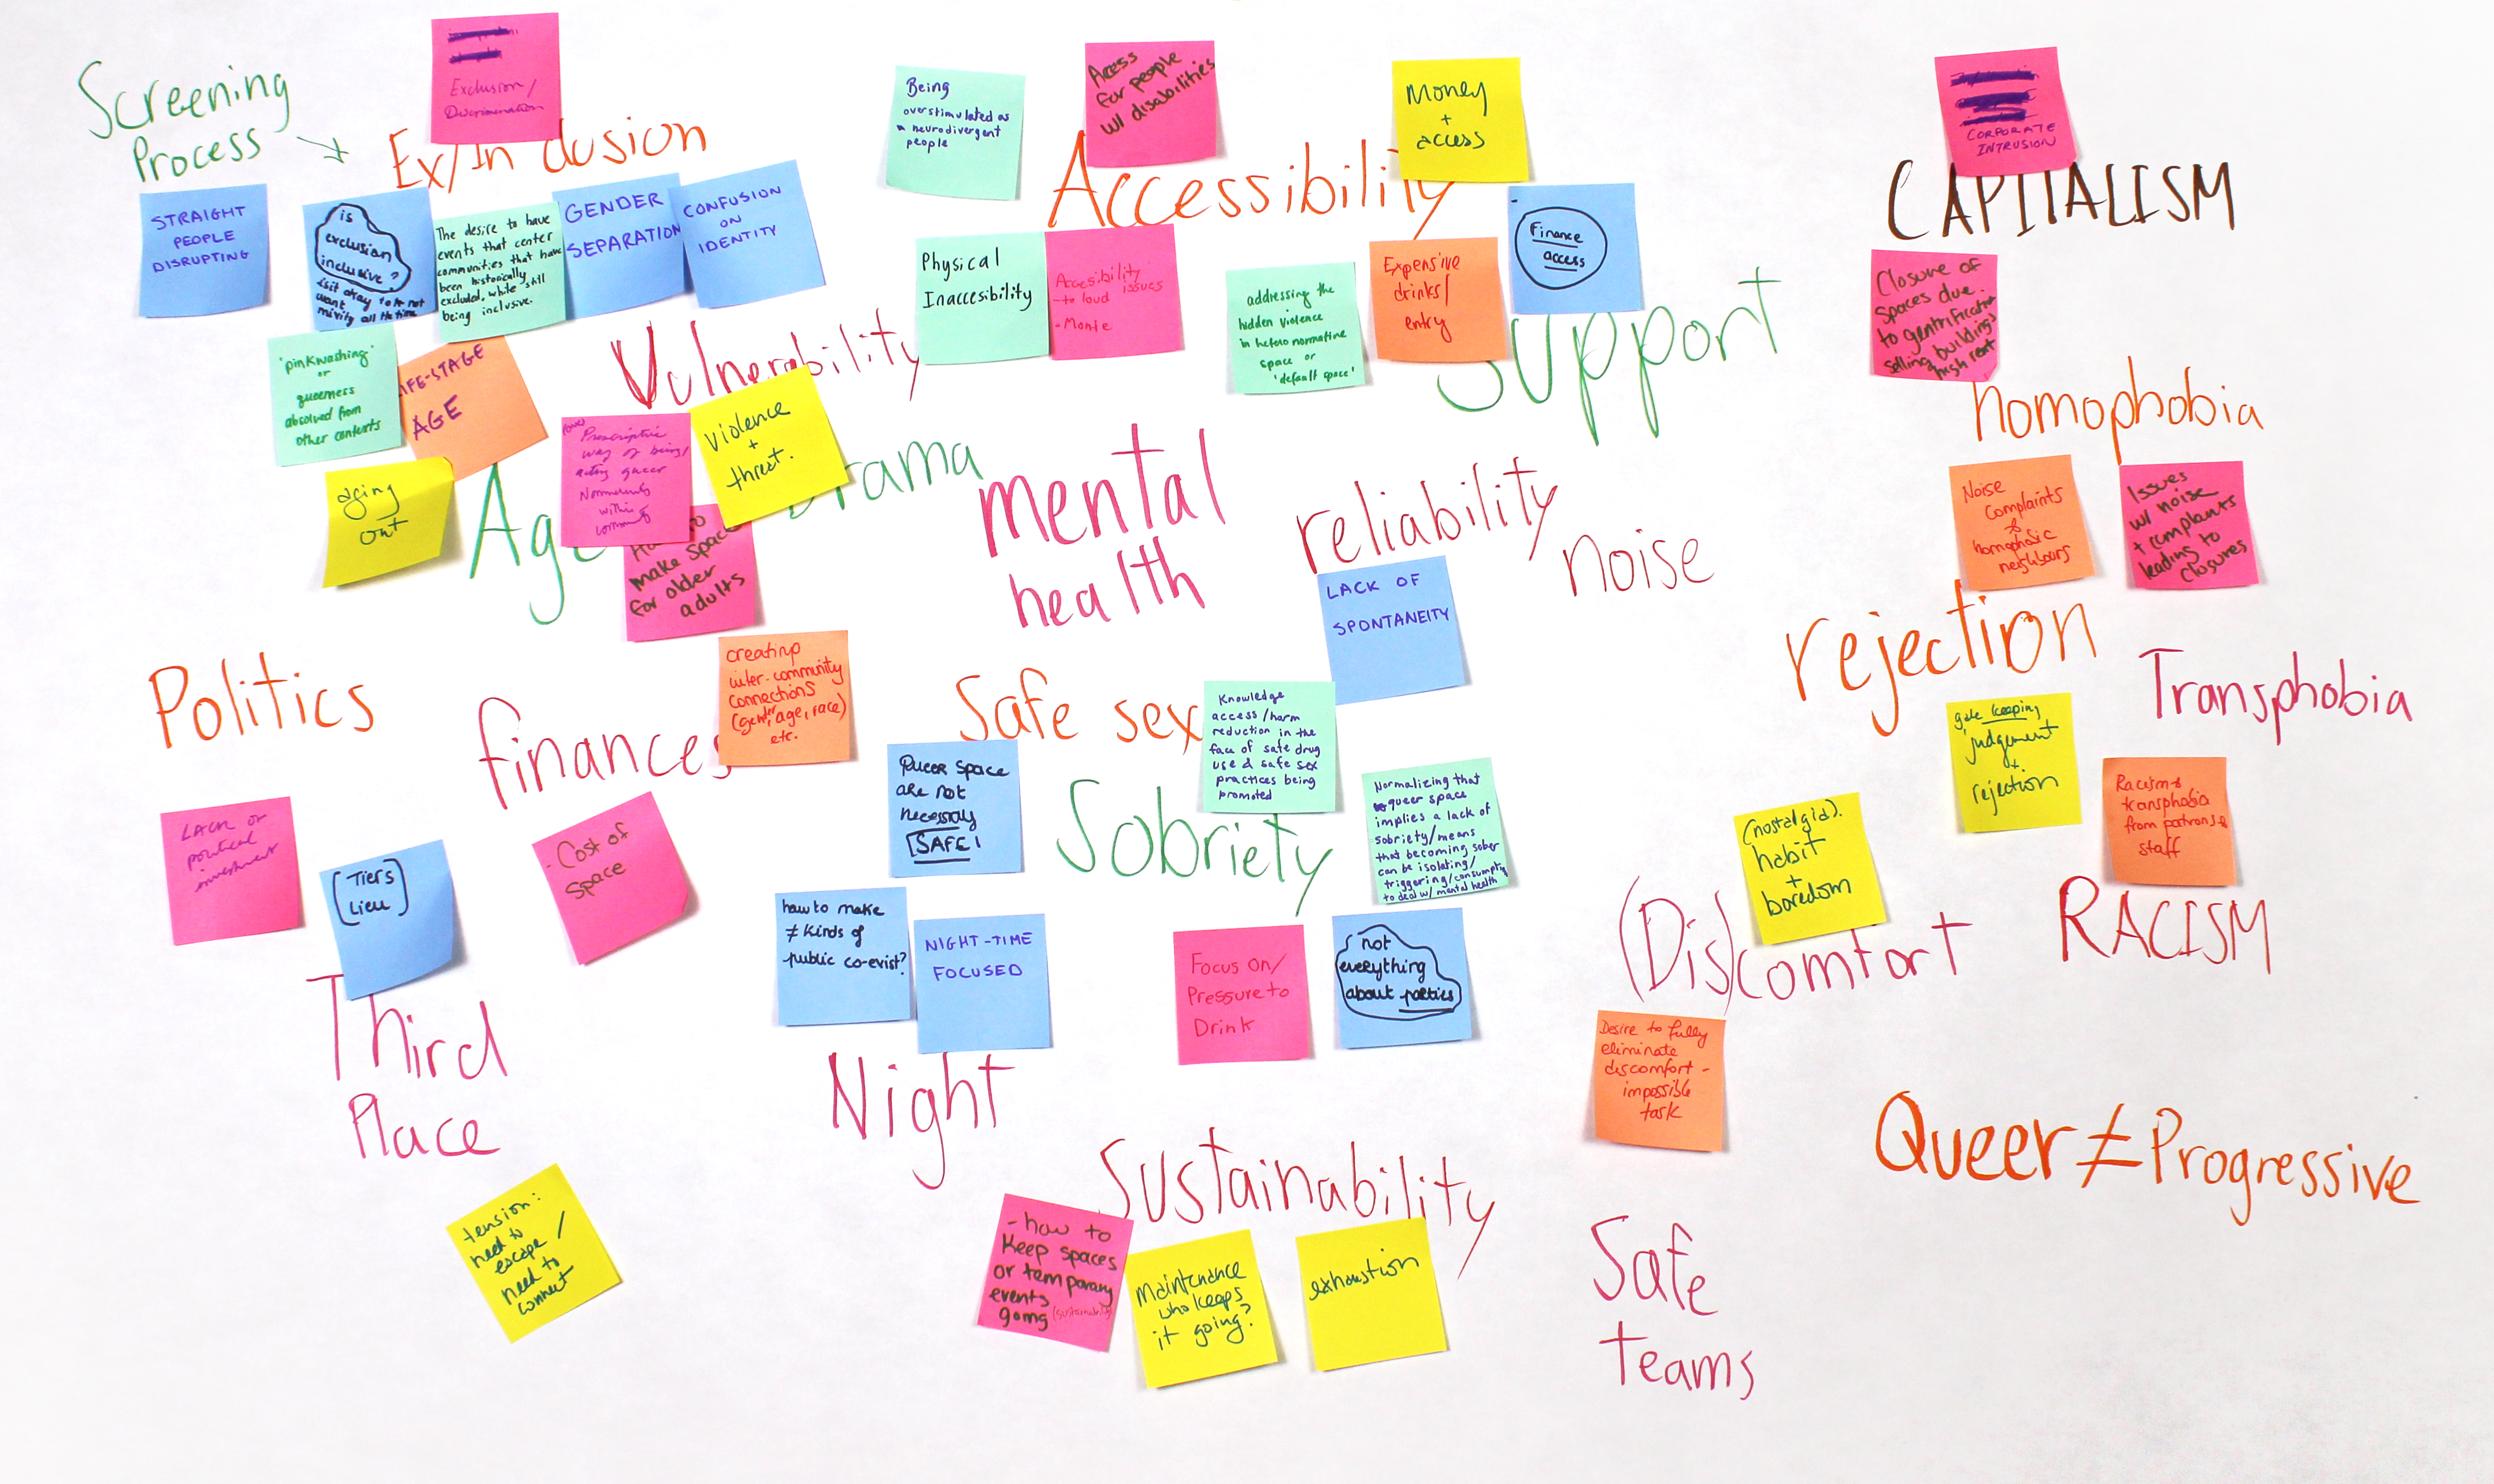 Screening
Process
Exclusion/
Discrimination
Ex/In clusion
STRAIGHT
PEOPLE
DISRUPTING
is
exclusion
inclusive?
is it okay to not
want
mixity all the time
The desire to have
events that center
communities that have
been historically
excluded, while still
being inclusive.
GENDER
SEPARATION
CONFUSION
ON
IDENTITY
"pinkwashing"
or
queerness
absolved from
other contexts
LIFE-STAGE
AGE
aging
out
Age
Vulnerability
Prescriptive
way of being/
acting queer
Normativity
within
community
violence
+
threat.
Drama
How to
make space
for older
adults
Being
overstimulated as
neurodivergent
people
Access
for people
w/ disabilities
Money
+
access
Accessibility
Physical
Inaccesibility
Accesibility
issues
- to loud
- Monie
addressing the
hidden violence
in hetero normative
space or
'default space'
Expensive
drinks/
entry
Finance
access
Support
CORPORATE
INTRUSION
CAPITALISM
Closure of
spaces due
to gentrification
selling buildings
high rent
homophobia
Noise
Complaints
&
homophobic
neighbours
Issues
w/ noise
+ complants
leading to
closures
mental
health
reliability
noise
LACK OF
SPONTANEITY
rejection
Transphobia
gate keeping
judgement
+
rejection
Racism &
transphobia
from patrons &
staff
RACISM
Politics
Lack of
political
investment
finances
creating
inter-community
connections
(gender, age, race)
etc.
- Cost of
space
(Tiers
Lieu)
Third
Place
tension:
need to
escape /
need to
connect
Safe sex
Knowledge
access/harm
reduction in the
face of safe drug
use & safe sex
practices being
promoted
Queer space
are not
necessarly
SAFE!
Sobriety
Normalizing that
queer space
implies a lack of
sobriety/means
that becoming sober
can be isolating/
triggering/consumption
to deal w/ mental health
how to make
≠ kinds of
public co-exist?
NIGHT-TIME
FOCUSED
Night
Focus on/
Pressure to
Drink
not
everything
about parties
(nostalgia).
habit
+
boredom
(Dis)comfort
Desire to fully
eliminate
discomfort -
impossible
task
Queer ≠ Progressive
Sustainability
- how to
keep spaces
or temporary
events
going (sustainability)
maintenance
who keeps
it going?
exhaustion
Safe
teams